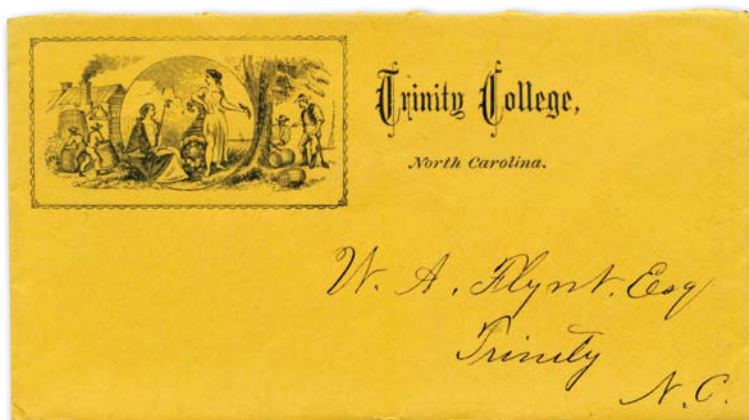 Trinity College,
North Carolina.
W. A. Flynt. Esq
Trinity
N. C.